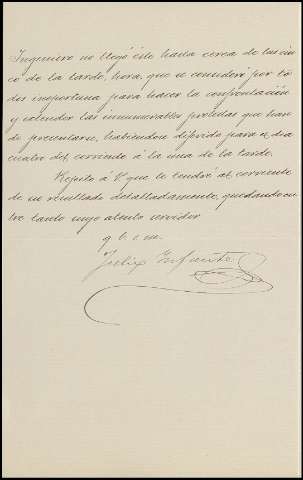 Ingeniero no llegó éste hasta cerca de las cin-
co de la tarde, hora, que se consideró por to-
dos inoportuna para hacer la confrontación
y estender las innumerables protestas que han
de presentarse, habiendose diferido para el dia
cuatro del corriente á la una de la tarde.
Repito á V. que le tendré al corriente
de su resultado detalladamente, quedando en-
tre tanto suyo atento servidor
q. b. s. m.
Julix Infante